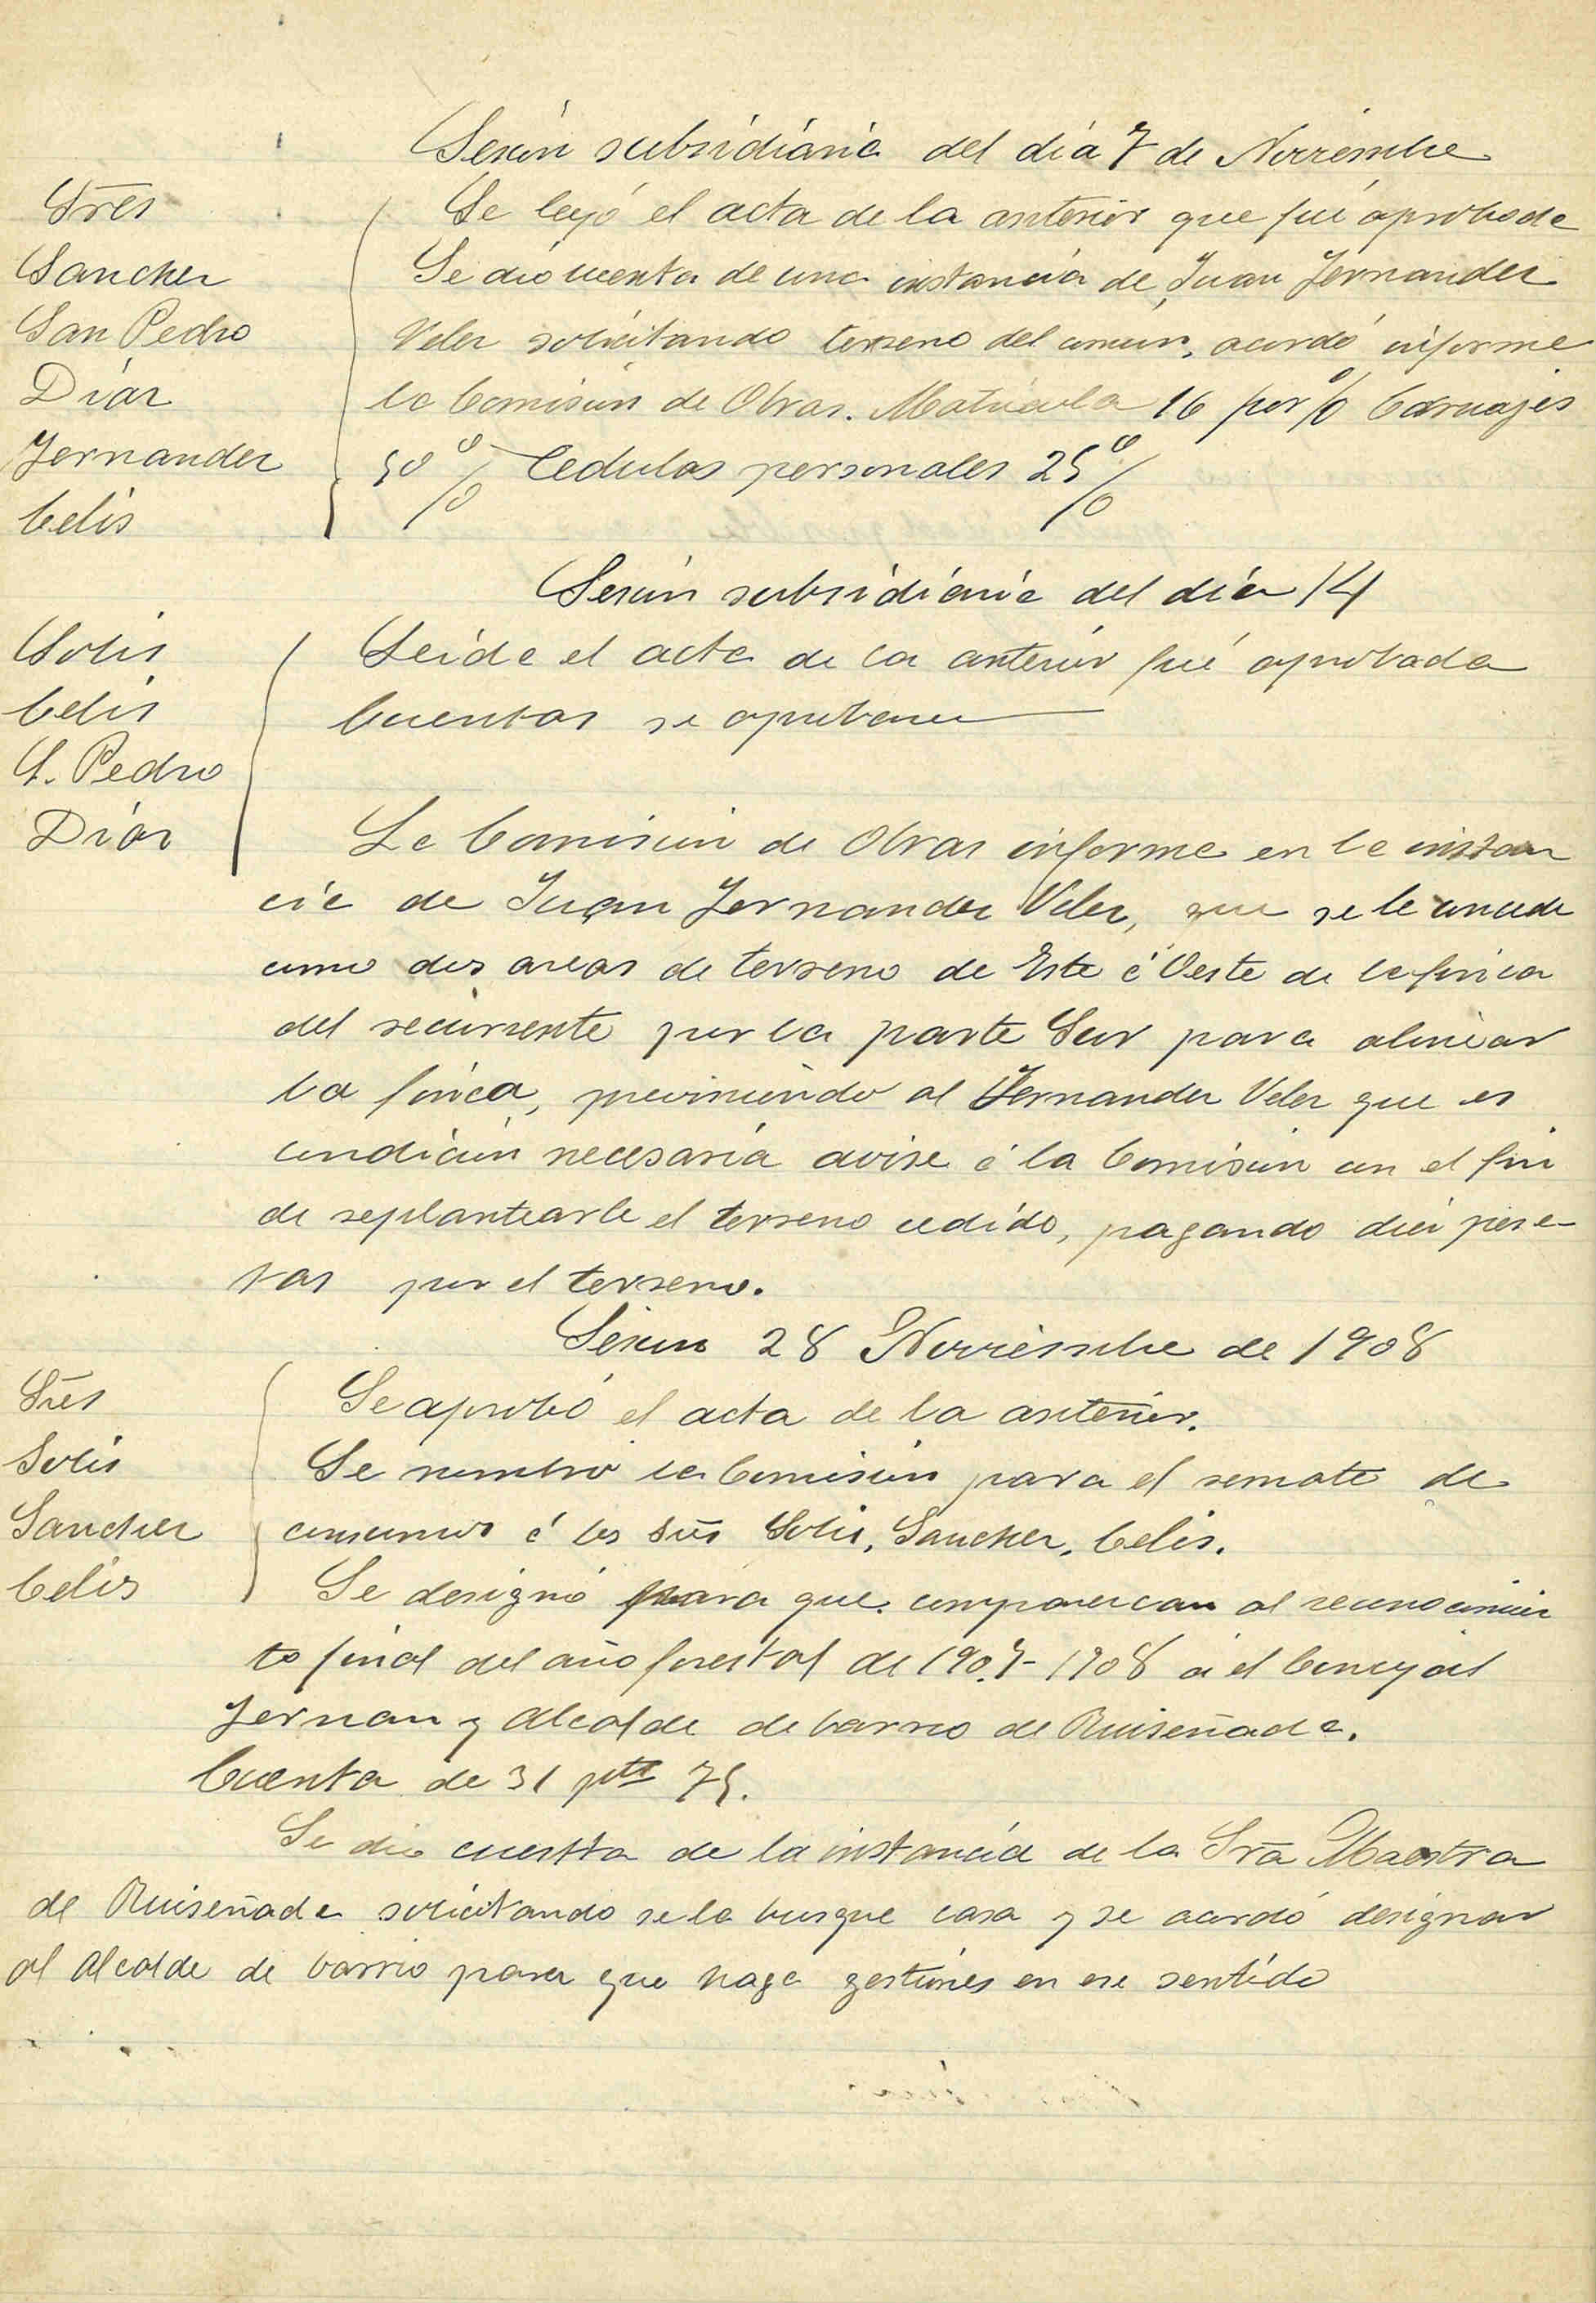 Sesión subsidiaria del día 7 de Noviembre
Sres
Sanchez
San Pedro
Díaz
Fernandez
Celis
Se leyó el acta de la anterior que fué aprobada
Se dio cuenta de una instancia de Juan Fernandez
Velez solicitando terreno del comun, acordó informe
la Comisión de Obras. Matricula 16 por % Carruajes
50 % Cedulas personales 25 %
Sesión subsidiaria del día 14
Solis
Celis
S. Pedro
Díaz
Leida el acta de la anterior fué aprobada
Cuentas se aprobaron
La Comisión de Obras informa en la instan
cia de Juan Fernandez Velez, que se le conceda
como dos areas de terreno de Este á Oeste de la finca
del recurrente por la parte Sur para alinear
la finca, previniendo al Fernandez Velez que es
condición necesaria avise á la Comisión con el fin
de replantearle el terreno cedido, pagando diez pese-
tas por el terreno.
Sesion 28 Noviembre de 1908
Sres
Solis
Sanchez
Celis
Se aprobó el acta de la anterior.
Se nombró la Comisión para el remate de
consumos á los Sres Solis, Sanchez, Celis.
Se designó para que comparezcan al reconocimien
to final del año forestal de 1907-1908 á el Concejal
Fernan y Alcalde de barrio de Ruiseñada.
Cuenta de 31 ptas 75.
Se dio cuenta de la instancia de la Sra Maestra
de Ruiseñada solicitando se la busque casa y se acordó designar
al Alcalde de barrio para que haga gestiones en ese sentido